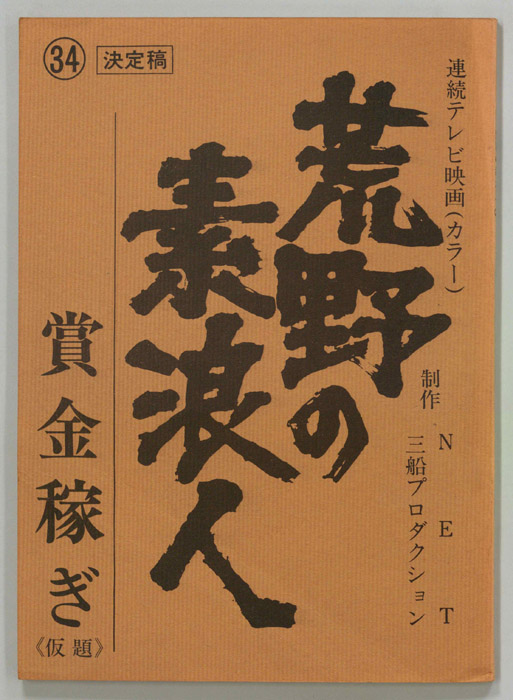 連続テレビ映画(カラー)
制作 NET
三船プロダクション
荒野の
素浪人
34 決定稿
賞金稼ぎ
《仮題》